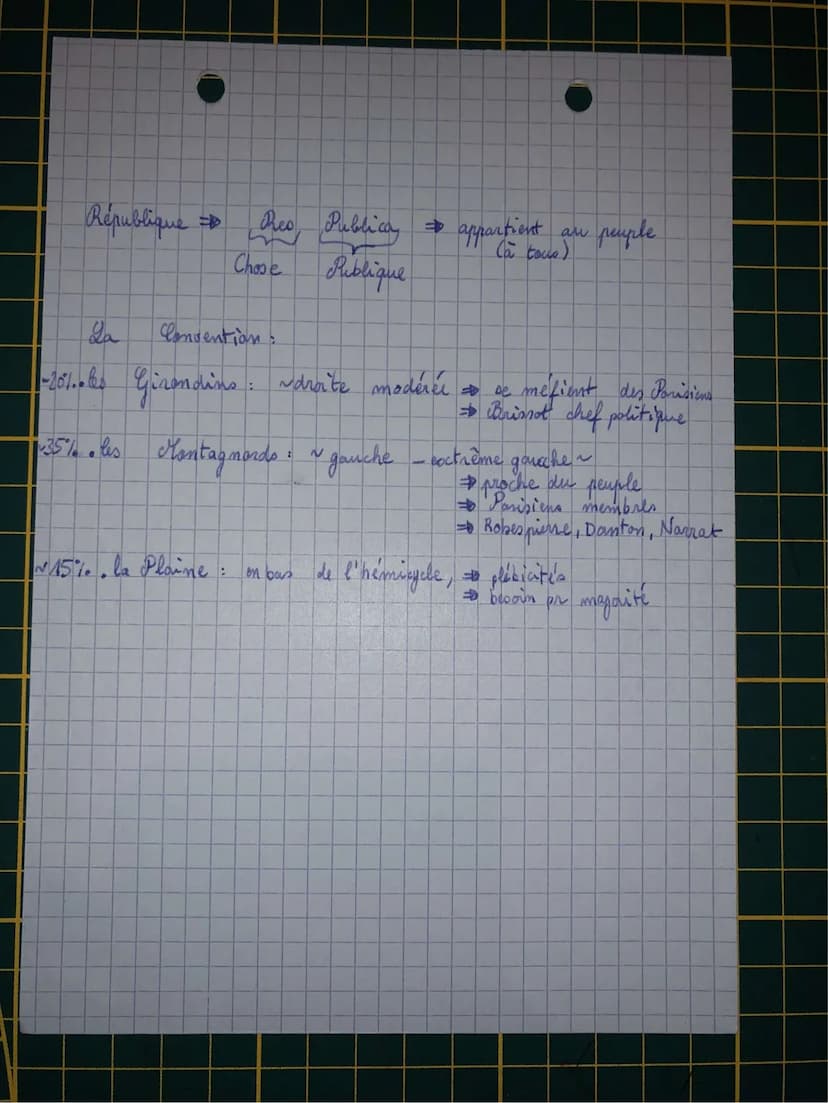 République ⇒ Res Publica ⇒ appartient au peuple
(à tous)
Chose Publique
La Convention :
~20%. les Girondins : ~droite modérée ⇒ se méfient des Parisiens
⇒ Brissot chef politique
~35%. les Montagnards : ~ gauche – extrême gauche ~
⇒ proche du peuple
⇒ Parisiens membres
⇒ Robespierre, Danton, Marrat
~15%. la Plaine : en bas de l'hémicycle, ⇒
⇒ besoin pr majorité